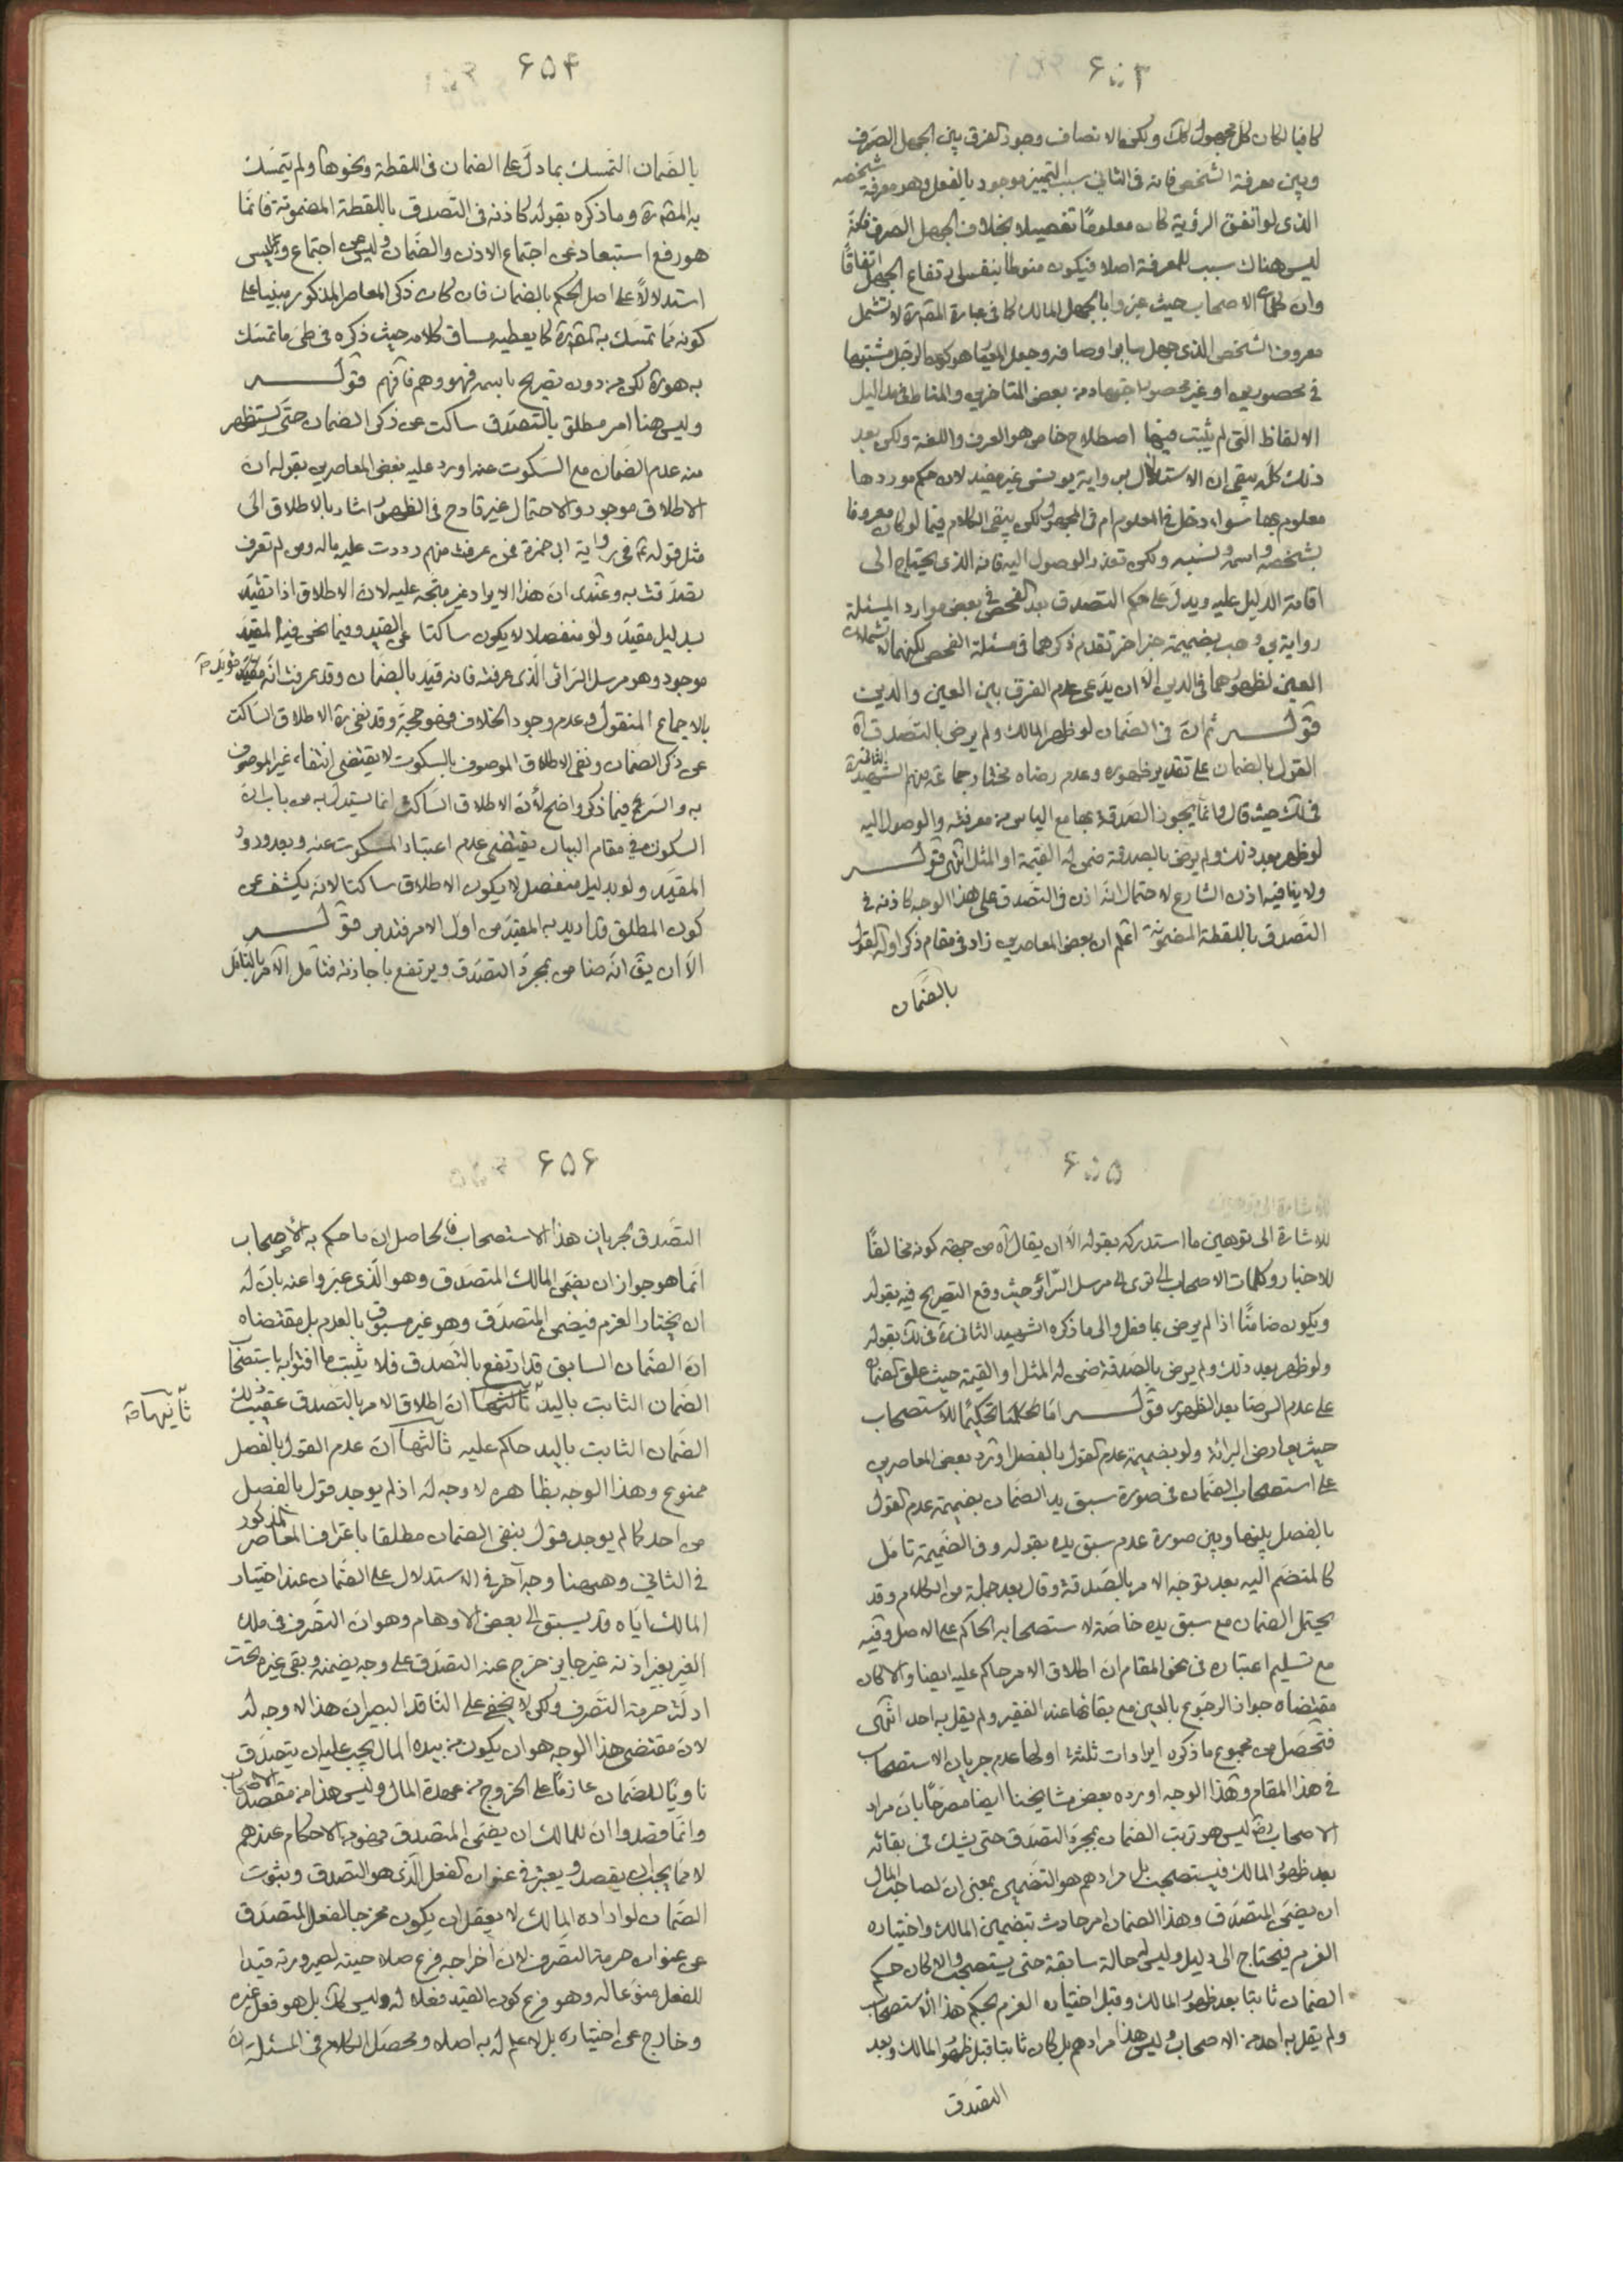 ۶۵۳
كافيا لكان كل مجهول كك ولكن الانصاف وجود الفرق بين الجهل الصرف
وبين معرفة الشخص فانه في الثاني سبب التميز موجود بالفعل وهو معرفة شخصه
الذي لو اتفق الرؤية كان معلومًا تفصيلا بخلاف الجهل الصرف فانه
ليس هناك سبب للمعرفة اصلا فيكون منوطا بنفس ارتفاع الجهل اتفاقًا
وان كلمات الاصحاب حيث عبروا بالجهل المالك كما في عبارة المقرة لا تشمل
معروف الشخص الذي جهل ساير اوصافه وجعل المعيّا هو كون الرجل مشتبها
في محصورين او غير محصور اجتهاد من بعض المتاخرين والمناط في مداليل
الالفاظ التي لم يثبت فيها اصطلاح خاص هو العرف واللغة ولكن بعد
ذلك كله يبقى ان الاستدلال برواية يونس غير مفيد لان حكم موردها
معلوم بها سواء دخل في المعلوم ام في المجهول ولكن يبقى الكلام فيما لو كان معروفا
بشخصه واسمه ونسبه ولكن تعذر الوصول اليه فانه الذي يحتاج الى
اقامة الدليل عليه ويدل على حكم التصدق بعد الفحص في بعض موارد المسئلة
رواية بن وهب بضميمة خبر اخر تقدم ذكرهما في مسئلة الفحص لكنهما لا تشملان
العين لظهورهما في الدين الا ان يدّعى عدم الفرق بين العين والدين
قولــه ثم ان في الضمان لو ظهر المالك ولم يرض بالتصدق آه
القول بالضمان على تقدير ظهوره وعدم رضاه مختار جماعة منهم الشهيد الثاني ره
في لك حيث قال وانما يجوز الصدقة بها مع الياس من معرفته والوصول اليه
لو ظهر بعد ذلك ولم يرض بالصدقة ضمن له القيمة او المثل انتهى قولــه
ولا ينافيه اذن الشارع لاحتمال انه اذن في التصدق على هذا الوجه كاذنه في
التصدق باللقطة المضمونة اعلم ان بعض المعاصرين زاد في مقام ذكر ادلة القول
بالضمان
۶۵۴
بالضمان التمسك بما دل على الضمان في اللقطة ونحوها ولم يتمسك
به المقرة وما ذكره بقوله كاذنه في التصدق باللقطة المضمونة فانما
هو رفع استبعاد عن اجتماع الاذن والضمان وليس عن اجتماع وليس
استدلالاً على اصل الحكم بالضمان فان كان ذكر المعاصر المذكور مبنيا على
كونه مما تمسك به المقرة كما يعطيه مساق كلامه حيث ذكره في طي ما تمسك
به هو ره لكن من دون تصريح باسمه فهو وهم فافهم قولــه
وليس هنا امر مطلق بالتصدق ساكت عن ذكر الضمان حتى يستظهر
منه عدم الضمان مع السكوت عنه اورد عليه بعض المعاصرين بقوله ان
الاطلاق موجود والاحتمال غير قادح في الظهور اشار بالاطلاق الى
مثل قوله ع في رواية ابى حمزة فمن عرفت منهم رددت عليه ماله ومن لم تعرف
تصدقت به وعندى ان هذا الايراد غير متجه عليه لان الاطلاق اذا تقيد
بدليل مقيد ولو منفصلا لا يكون ساكتا عن القيد وفيما نحن فيه المقيد
موجود وهو مرسل السرائر الذي عرفته فانه قيد بالضمان وقد عرفت انه مؤيد
بالاجماع المنقول وعدم وجود الخلاف فهو حجة وقد نفى ره الاطلاق الساكت
عن ذكر الضمان ونفى الاطلاق الموصوف بالسكوت لا يقتضي انتفاء غير الموصوف
به والسر فيما ذكر واضح لأن الاطلاق الساكت انما يستدل به من باب ان
السكوت في مقام البيان يقتضي عدم اعتبار المسكوت عنه وبعد ورود
المقيد ولو بدليل منفصل لا يكون الاطلاق ساكتا لانه يكشف عن
كون المطلق قد اريد به المقيد من اول الامر فتدبر قولــه
الا ان يق انه ضامن بمجرد التصدق ويرتفع باجازته فتامل الامر بالتامل
۶۵۵
للاشارة الى توهين ما استدركه بقوله الا ان يقال اه من جهة كونه مخالفًا
للاخبار وكلمات الاصحاب الى ترى الى مرسل السرائر حيث وقع التصريح فيه بقوله
ويكون ضامنًا اذا لم يرض بما فعل والى ما ذكره الشهيد الثاني ره في لك بقوله
ولو ظهر بعد ذلك ولم يرض بالصدقة ضمن له المثل او القيمة حيث علق الضمان
على عدم الرضا بعد الظهور قولــه اما تحكيمًا للاستصحاب
حيث يعارض البرائة ولو بضميمة عدم القول بالفصل اورد بعض المعاصرين
على استصحاب الضمان في صورة سبق يد الضمان بضميمة عدم القول
بالفصل بينها وبين صورة عدم سبق يده بقوله وفي الضميمة تامل
كالمنضم اليه بعد توجه الامر بالصدقة وقال بعد جملة من الكلام وقد
يحتمل الضمان مع سبق يده خاصة لاستصحابه الحاكم على الاصل وفيه
مع تسليم اعتباره في نحو المقام ان اطلاق الامر حاكم عليه ايضا والا كان
مقتضاه جواز الرجوع بالعين مع بقائها عند الفقير ولم يقل به احد انتهى
فتحصل من مجموع ما ذكره ايرادات ثلثة اولها عدم جريان الاستصحاب
في هذا المقام وهذا الوجه اورده بعض مشايخنا ايضا مصرحًا بان مراد
الاصحاب رض ليس هو ترتب الضمان بمجرد التصدق حتى يشك في بقائه
بعد ظهور المالك فيستصحب بل مرادهم هو التضمين بمعنى ان لصاحب المال
ان يضمن المتصدق وهذا الضمان امر حادث بتضمين المالك واختياره
الغرم فيحتاج الى دليل وليس له حالة سابقة حتى يستصحب والا لكان حكم
الضمان ثابتا بعد ظهور المالك وقبل اختياره الغرم بحكم هذا الاستصحاب
ولم يقل به احد من الاصحاب وليس هذا مرادهم بل كان ثابتا قبل ظهور المالك وبعد
التصدق
۶۵۶
التصدق بجريان هذا الاستصحاب فالحاصل ان ما حكم به الاصحاب
انما هو جواز ان يضمن المالك المتصدق وهو الذي عبروا عنه بان له
ان يختار الغرم فيضمن المتصدق وهو غير مسبوق بالعدم بل مقتضاه
ان الضمان السابق قد ارتفع بالتصدق فلا يثبت ما افتوا به باستصحاب
الضمان الثابت باليد ثانيها ان اطلاق الامر بالتصدق عقيب ذلك
الضمان الثابت باليد حاكم عليه ثالثها ان عدم القول بالفصل
ممنوع وهذا الوجه بظاهره لا وجه له اذ لم يوجد قول بالفصل
من احد كما لم يوجد قول بنفي الضمان مطلقا باعتراف المعاصر المذكور
في الثاني وهيهنا وجه آخر في الاستدلال على الضمان عند اختيار
المالك اياه قد يسبق الى بعض الاوهام وهو ان التصرف في ملك
الغير بغير اذنه غير جايز خرج عنه التصدق على وجه يضمنه وبقى غيره تحت
ادلة حرمة التصرف ولكن لا يخفى على الناقد البصير ان هذا لا وجه له
لان مقتضى هذا الوجه هو ان يكون من بيده المال يجب عليه ان يتصدق
ناويًا للضمان عازمًا على الخروج من عهدة المال وليس هذا من مقصد الاصحاب
وانما قصدوا ان للمالك ان يضمن المتصدق فهو من الاحكام عندهم
لا مما يجب ان يقصد ويعتبر في عنوان الفعل الذي هو التصدق وثبوت
الضمان لو اراده المالك لا يعقل ان يكون مخرجا لفعل المتصدق
عن عنوان حرمة التصرف لان اخراجه فرع صلاحيته لصيرورته قيدا
للفعل منوعا له وهو فرع كون القيد فعلا له وليس كك بل هو فعل غيره
وخارج عن اختياره بل لا علم له به اصلا ومحصل الكلام في المسئلة ان
ثانيها